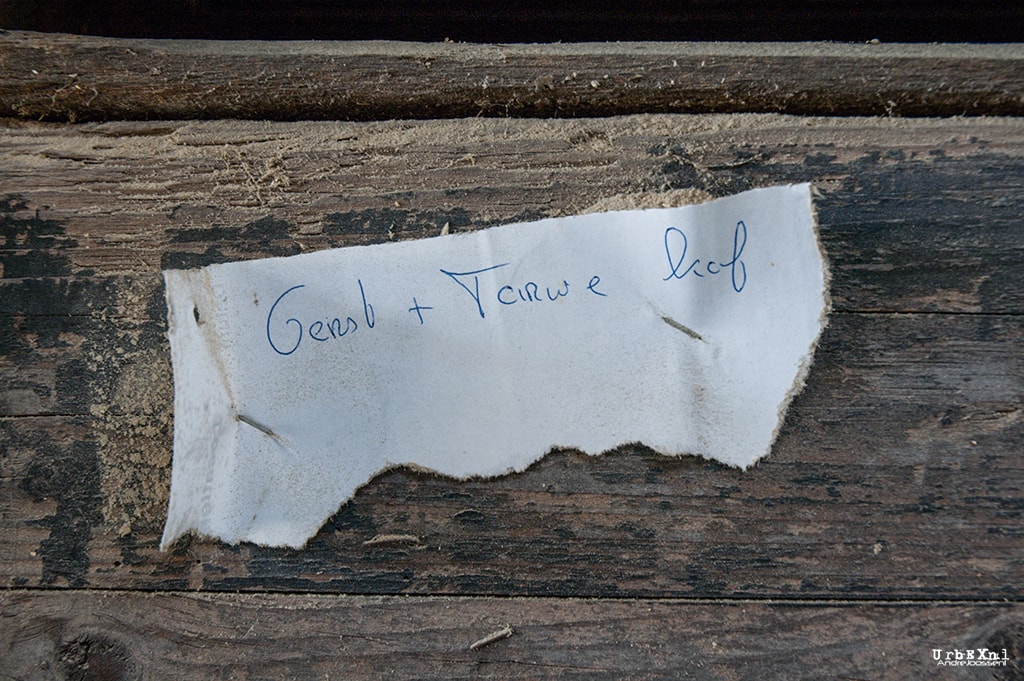 Gerst + Tarwe kaf
UrbEXnl
AndreJoosse.nl